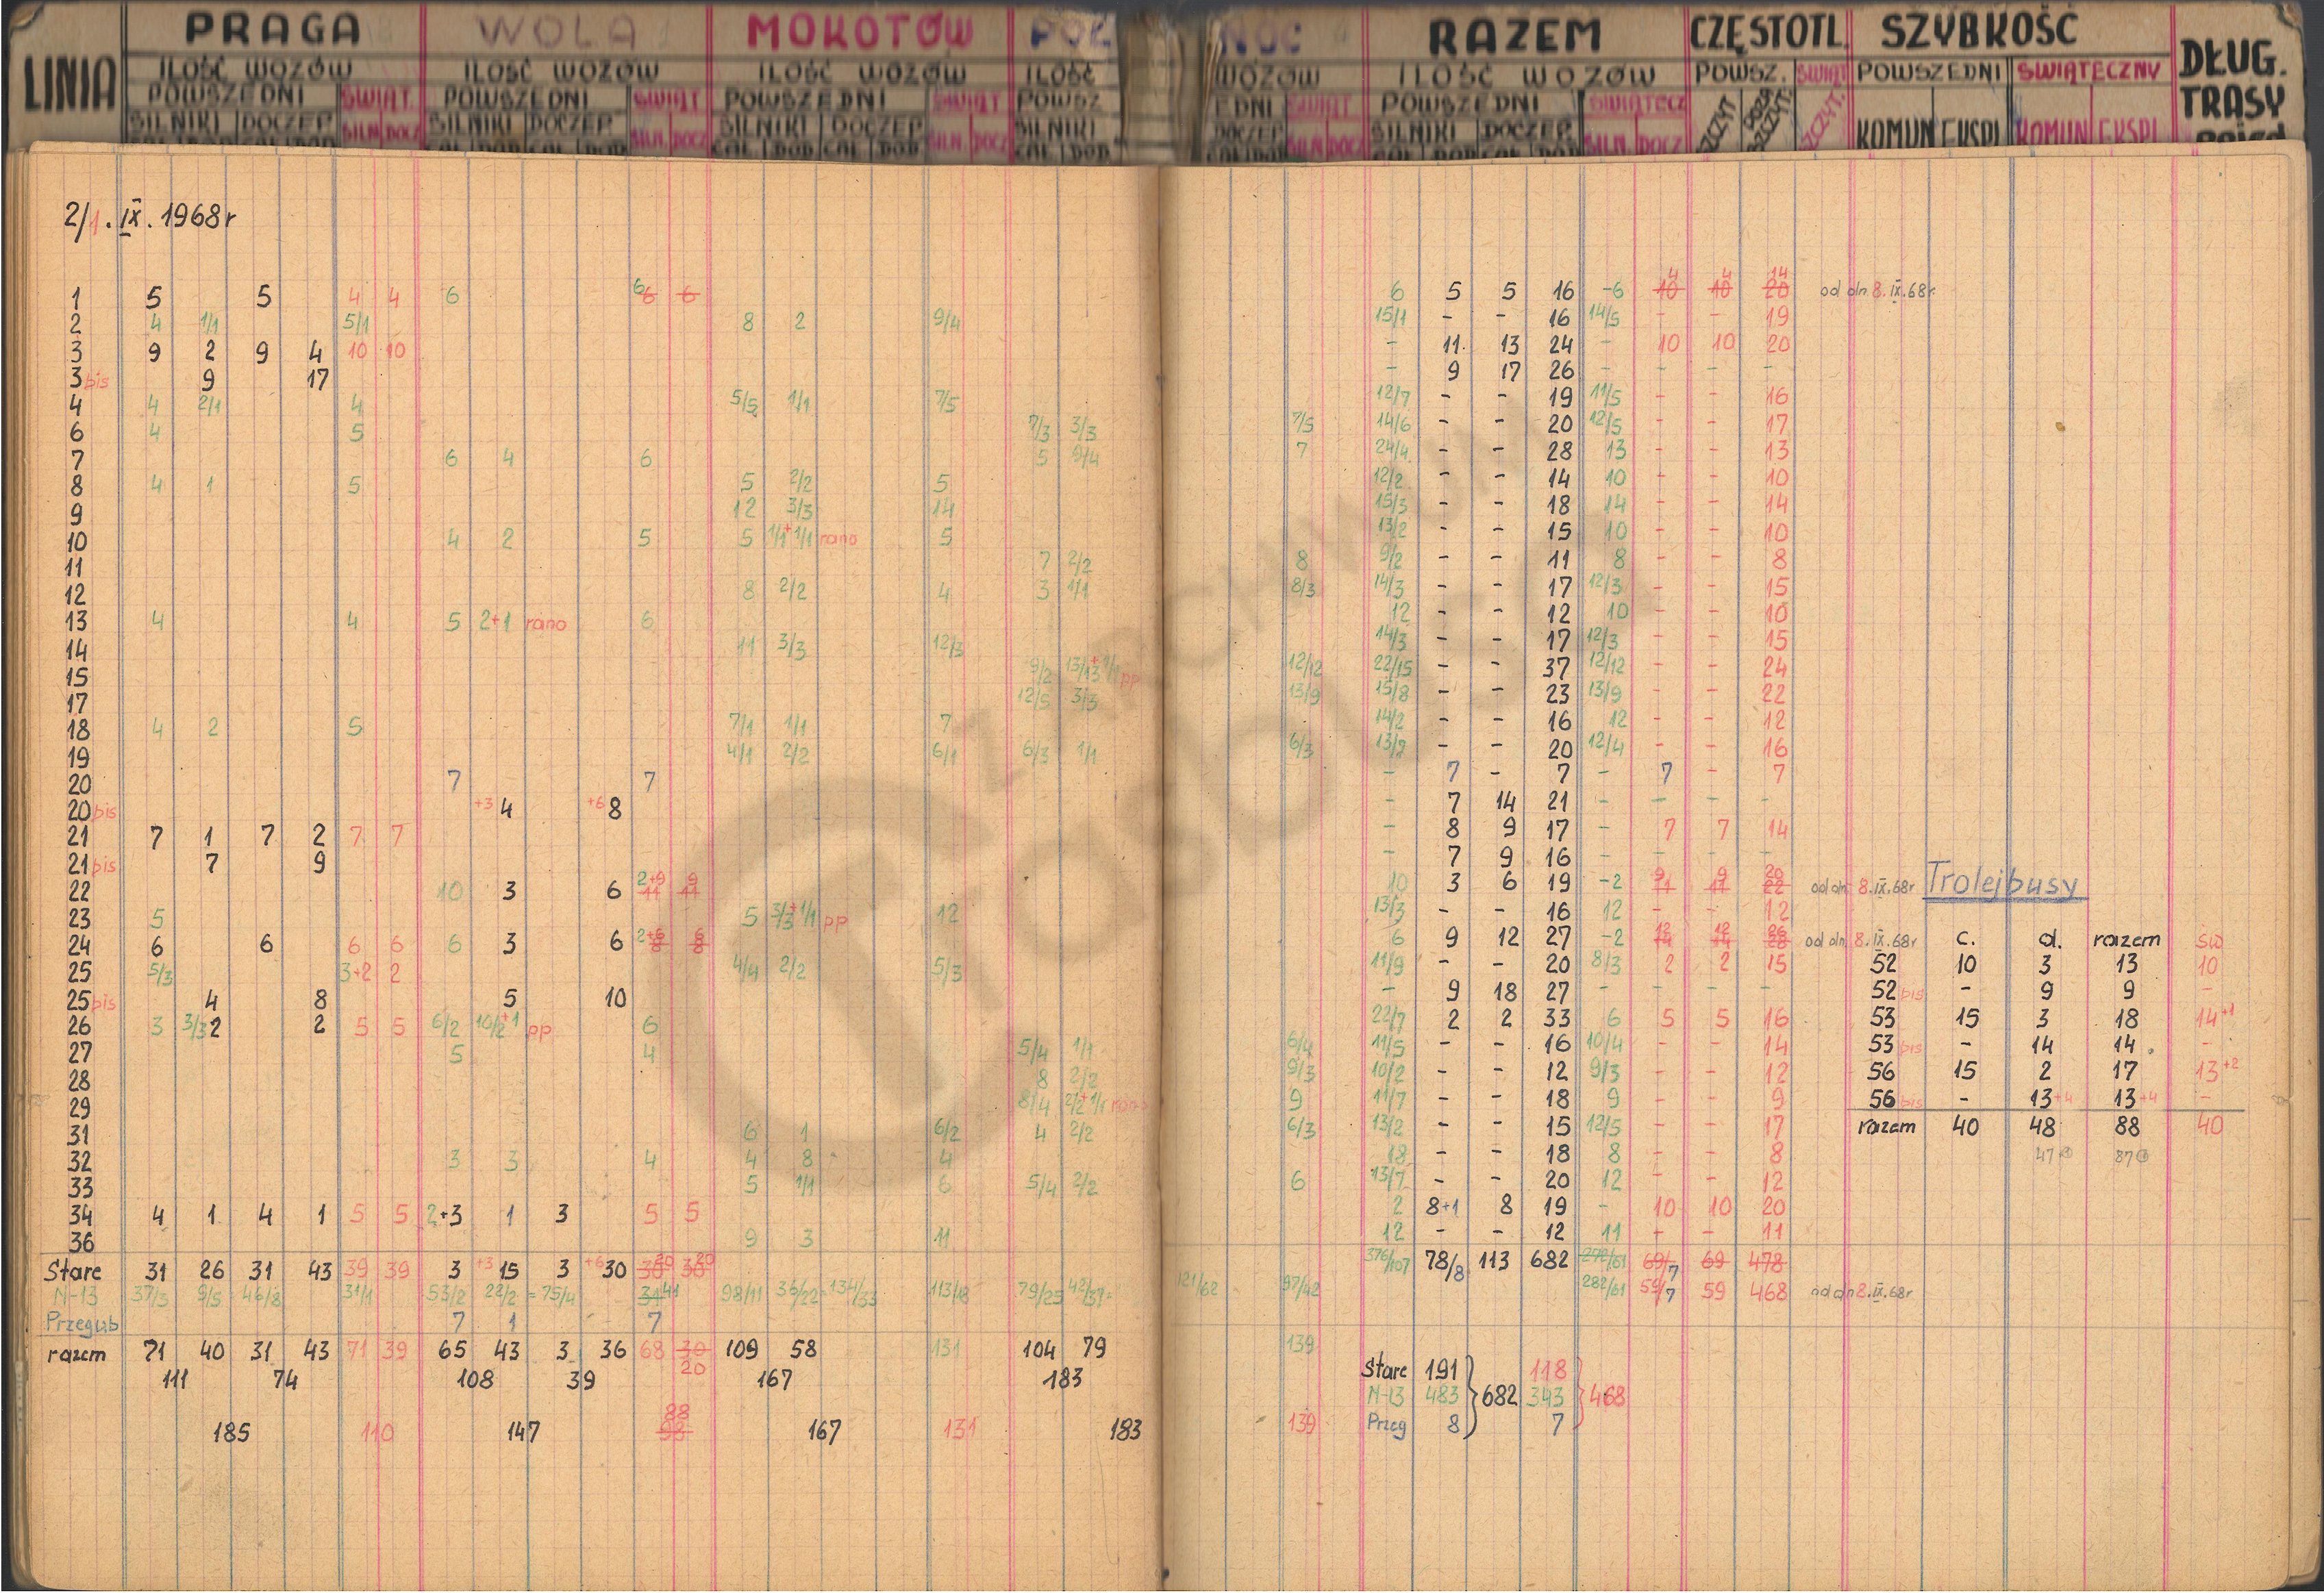 LINIA PRAGA WOLA MOKOTÓW PÓŁ NOC RAZEM CZĘSTOTL. SZYBKOŚĆ DŁUG. TRASY
ILOŚĆ WOZÓW ILOŚĆ WOZÓW ILOŚĆ WOZÓW ILOŚĆ WOZÓW ILOŚĆ WOZÓW POWSZ. ŚWIĄT POWSZEDNI ŚWIĄTECZNY
POWSZEDNI ŚWIĄT. POWSZEDNI ŚWIĄT POWSZEDNI ŚWIĄT POWSZ EDNI ŚWIĄT POWSZEDNI ŚWIĄTECZ SZCZYT POZA SZCZYT. SZCZYT.
SILNIKI DOCZEP SILN. DOCZ SILNIKI DOCZEP SILN. DOCZ SILNIKI DOCZEP SILN. DOCZ SILNIKI DOCZEP SILN DOCZ SILNIKI DOCZEP SILN. DOCZ KOMUN EKSPL KOMUN EKSPL
2/1. IX. 1968r
1 5 5 4 4 6 6 6 6 6 5 5 16 -6 10 4 10 4 20 14 od dn. 8.IX.68r.
2 4 1/1 5/1 8 2 9/4 15/1 - - 16 14/5 - - 19
3 9 2 9 4 10 10 - 11 13 24 - 10 10 20
3 bis 9 17 - 9 17 26 - - - -
4 4 2/1 4 5/5 1/1 7/5 12/7 - - 19 11/5 - - 16
6 4 5 7/3 3/3 7/5 14/6 - - 20 12/5 - - 17
7 6 4 6 5 9/4 7 24/4 - - 28 13 - - 13
8 4 1 5 5 2/2 5 12/2 - - 14 10 - - 10
9 12 3/3 14 15/3 - - 18 14 - - 14
10 4 2 5 5 1/1+1/1 rano 5 13/2 - - 15 10 - - 10
11 7 2/2 8 9/2 - - 11 8 - - 8
12 8 2/2 4 3 1/1 8/3 14/3 - - 17 12/3 - - 15
13 4 4 5 2+1 rano 6 12 - - 12 10 - - 10
14 11 3/3 12/3 14/3 - - 17 12/3 - - 15
15 9/2 13/13+1/1 pp 12/12 22/15 - - 37 12/12 - - 24
17 12/5 3/3 13/9 15/8 - - 23 13/9 - - 22
18 4 2 5 7/1 1/1 7 14/2 - - 16 12 - - 12
19 4/1 2/2 6/1 6/3 1/1 6/3 13/2 - - 20 12/4 - - 16
20 7 7 - 7 - 7 - 7 - 7
20 bis +3 4 +6 8 - 7 14 21 - - - -
21 7 1 7 2 7 7 - 8 9 17 - 7 7 14
21 bis 7 9 - 7 9 16 - - - -
22 10 3 6 2+9 11 9 11 10 3 6 19 -2 9 11 9 11 20 22 od dn. 8.IX.68r Trolejbusy
23 5 5 3/3+1/1 pp 12 13/3 - - 16 12 - - 12
24 6 6 6 6 6 3 6 2+6 8 6 8 6 9 12 27 -2 12 14 12 14 26 28 od dn. 8.IX.68r c. d. razem św
25 5/3 3+2 2 4/4 2/2 5/3 11/9 - - 20 8/3 2 2 15 52 10 3 13 10
25 bis 4 8 5 10 - 9 18 27 - - - - 52 bis - 9 9 -
26 3 3/3 2 2 5 5 6/2 10/2+1 pp 6 22/7 2 2 33 6 5 5 16 53 15 3 18 14+1
27 5 4 5/4 1/1 6/4 11/5 - - 16 10/4 - - 14 53 bis - 14 14. -
28 8 2/2 9/3 10/2 - - 12 9/3 - - 12 56 15 2 17 13+2
29 8/4 2/2+1/1 rano 9 11/7 - - 18 9 - - 9 56 bis - 13+4 13+4 -
31 6 1 6/2 4 2/2 6/3 13/2 - - 15 12/5 - - 17 razem 40 48 88 40
32 3 3 4 4 8 4 18 - - 18 8 - - 8 47 87
33 5 1/1 6 5/4 2/2 6 13/7 - - 20 12 - - 12
34 4 1 4 1 5 5 2+3 1 3 5 5 2 8+1 8 19 - 10 10 20
36 9 3 11 12 - - 12 11 - - 11
Stare 31 26 31 43 39 39 3 +3 15 3 +6 30 30 20 30 20 376/107 78/8 113 682 272/61 69/7 69 478
N-13 37/3 9/5 46/8 31/1 53/2 22/2 =75/4 31 41 98/11 36/22=134/33 113/18 79/25 42/37= 121/62 97/42 282/61 59/7 59 468 od dn 8.IX.68r
Przegub 7 1 7
razem 71 40 31 43 71 39 65 43 3 36 68 30 20 109 58 131 104 79 139
111 74 108 39 167 183
Stare 191 118
N-13 483 682 343 468
Przeg 8 7
185 110 147 88 98 167 131 183 139